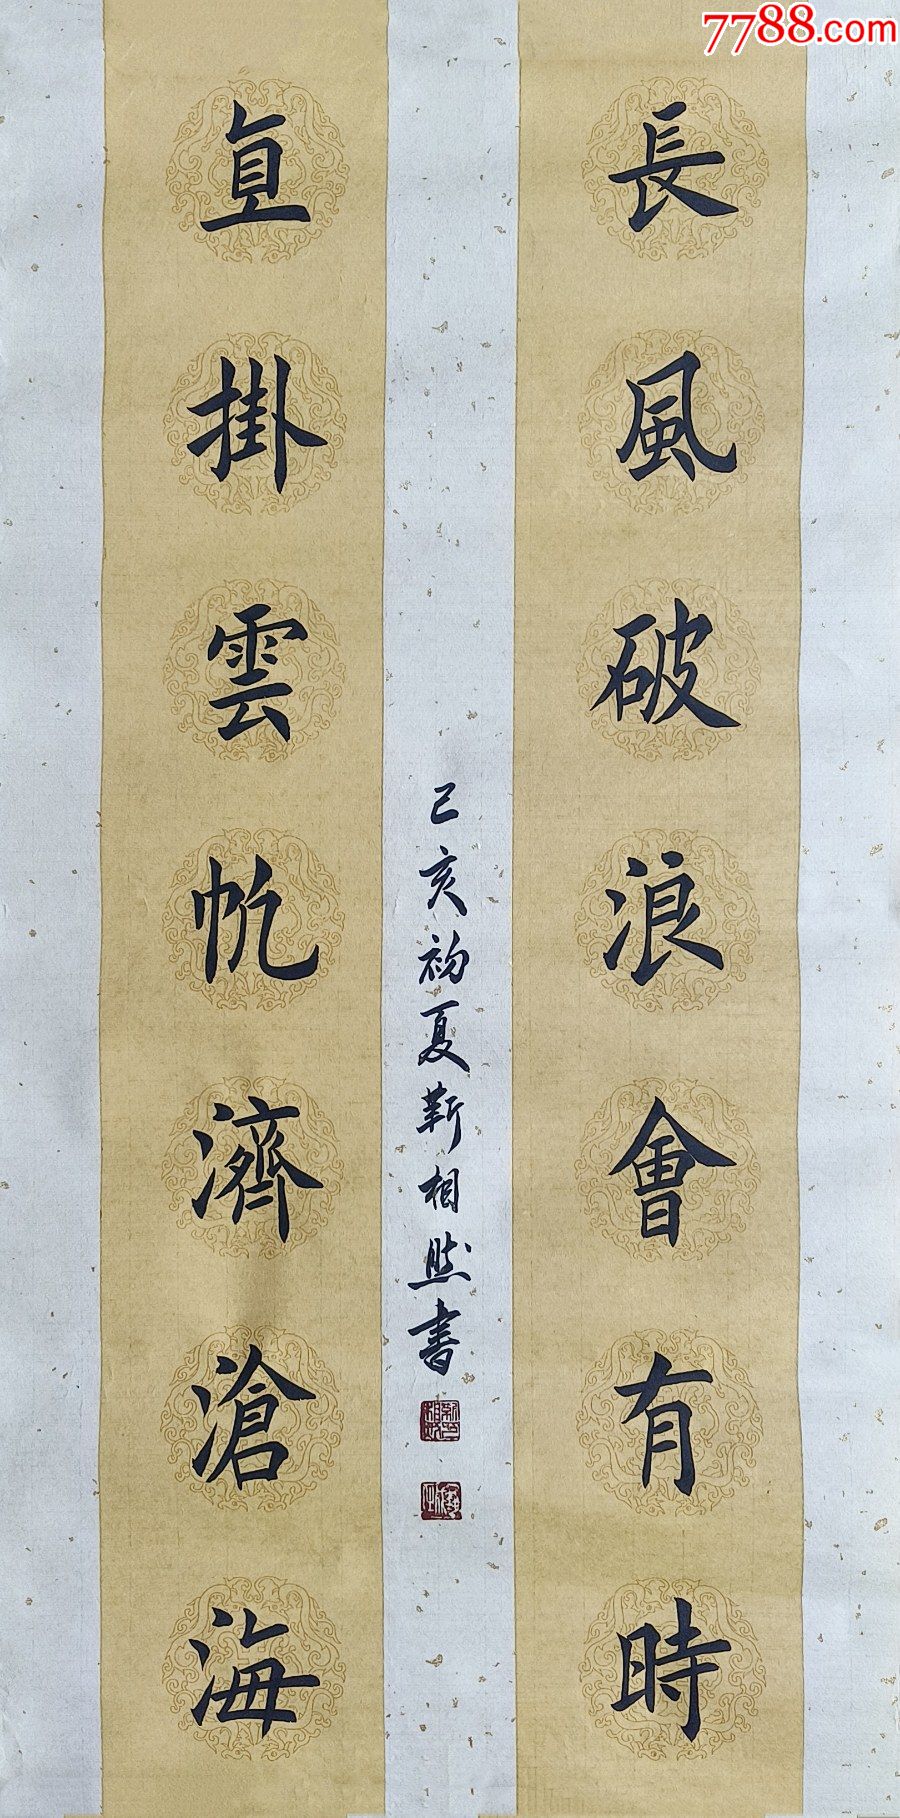 7788.com
長風破浪會有時
直掛雲帆濟滄海
己亥初夏靳相然書